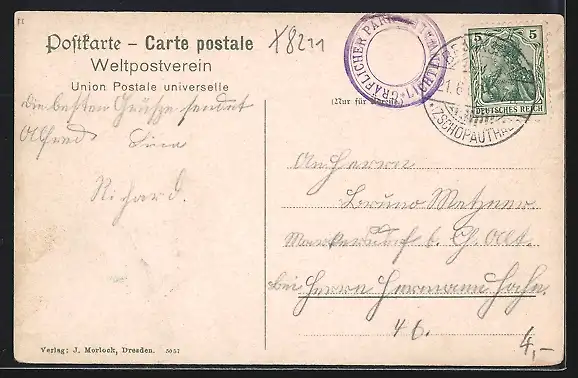 Postkarte – Carte postale
Weltpostverein
Union Postale universelle
X8211
GRÄFLICHER PARK LICHT
(Nur für
21.6
ZSCHOPAUTHAL
5 5
DEUTSCHES REICH
die besten Grüße sendet
Alfred
Richard.
An Herrn
Bruno Metzner
Markersdorf b.
bei Herrn Hermann Hahn.
46.
4,-
Verlag: J. Morlock, Dresden. 5057